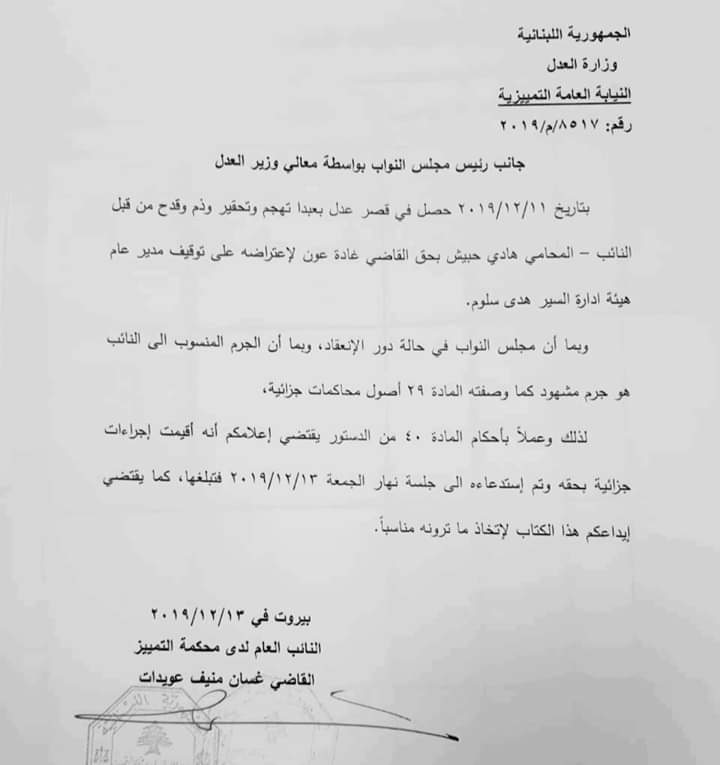 الجمهورية اللبنانية
وزارة العدل
النيابة العامة التمييزية
رقم: ٨٥١٧/م/٢٠١٩
جانب رئيس مجلس النواب بواسطة معالي وزير العدل
بتاريخ ٢٠١٩/١٢/١١ حصل في قصر عدل بعبدا تهجم وتحقير وذم وقدح من قبل
النائب – المحامي هادي حبيش بحق القاضي غادة عون لإعتراضه على توقيف مدير عام
هيئة ادارة السير هدى سلوم.
وبما أن مجلس النواب في حالة دور الإنعقاد، وبما أن الجرم المنسوب الى النائب
هو جرم مشهود كما وصفته المادة ٢٩ أصول محاكمات جزائية،
لذلك وعملاً بأحكام المادة ٤٠ من الدستور يقتضي إعلامكم أنه أقيمت إجراءات
جزائية بحقه وتم إستدعاءه الى جلسة نهار الجمعة ٢٠١٩/١٢/١٣ فتبلغها، كما يقتضي
إيداعكم هذا الكتاب لإتخاذ ما ترونه مناسباً.
بيروت في ٢٠١٩/١٢/١٣
النائب العام لدى محكمة التمييز
القاضي غسان منيف عويدات